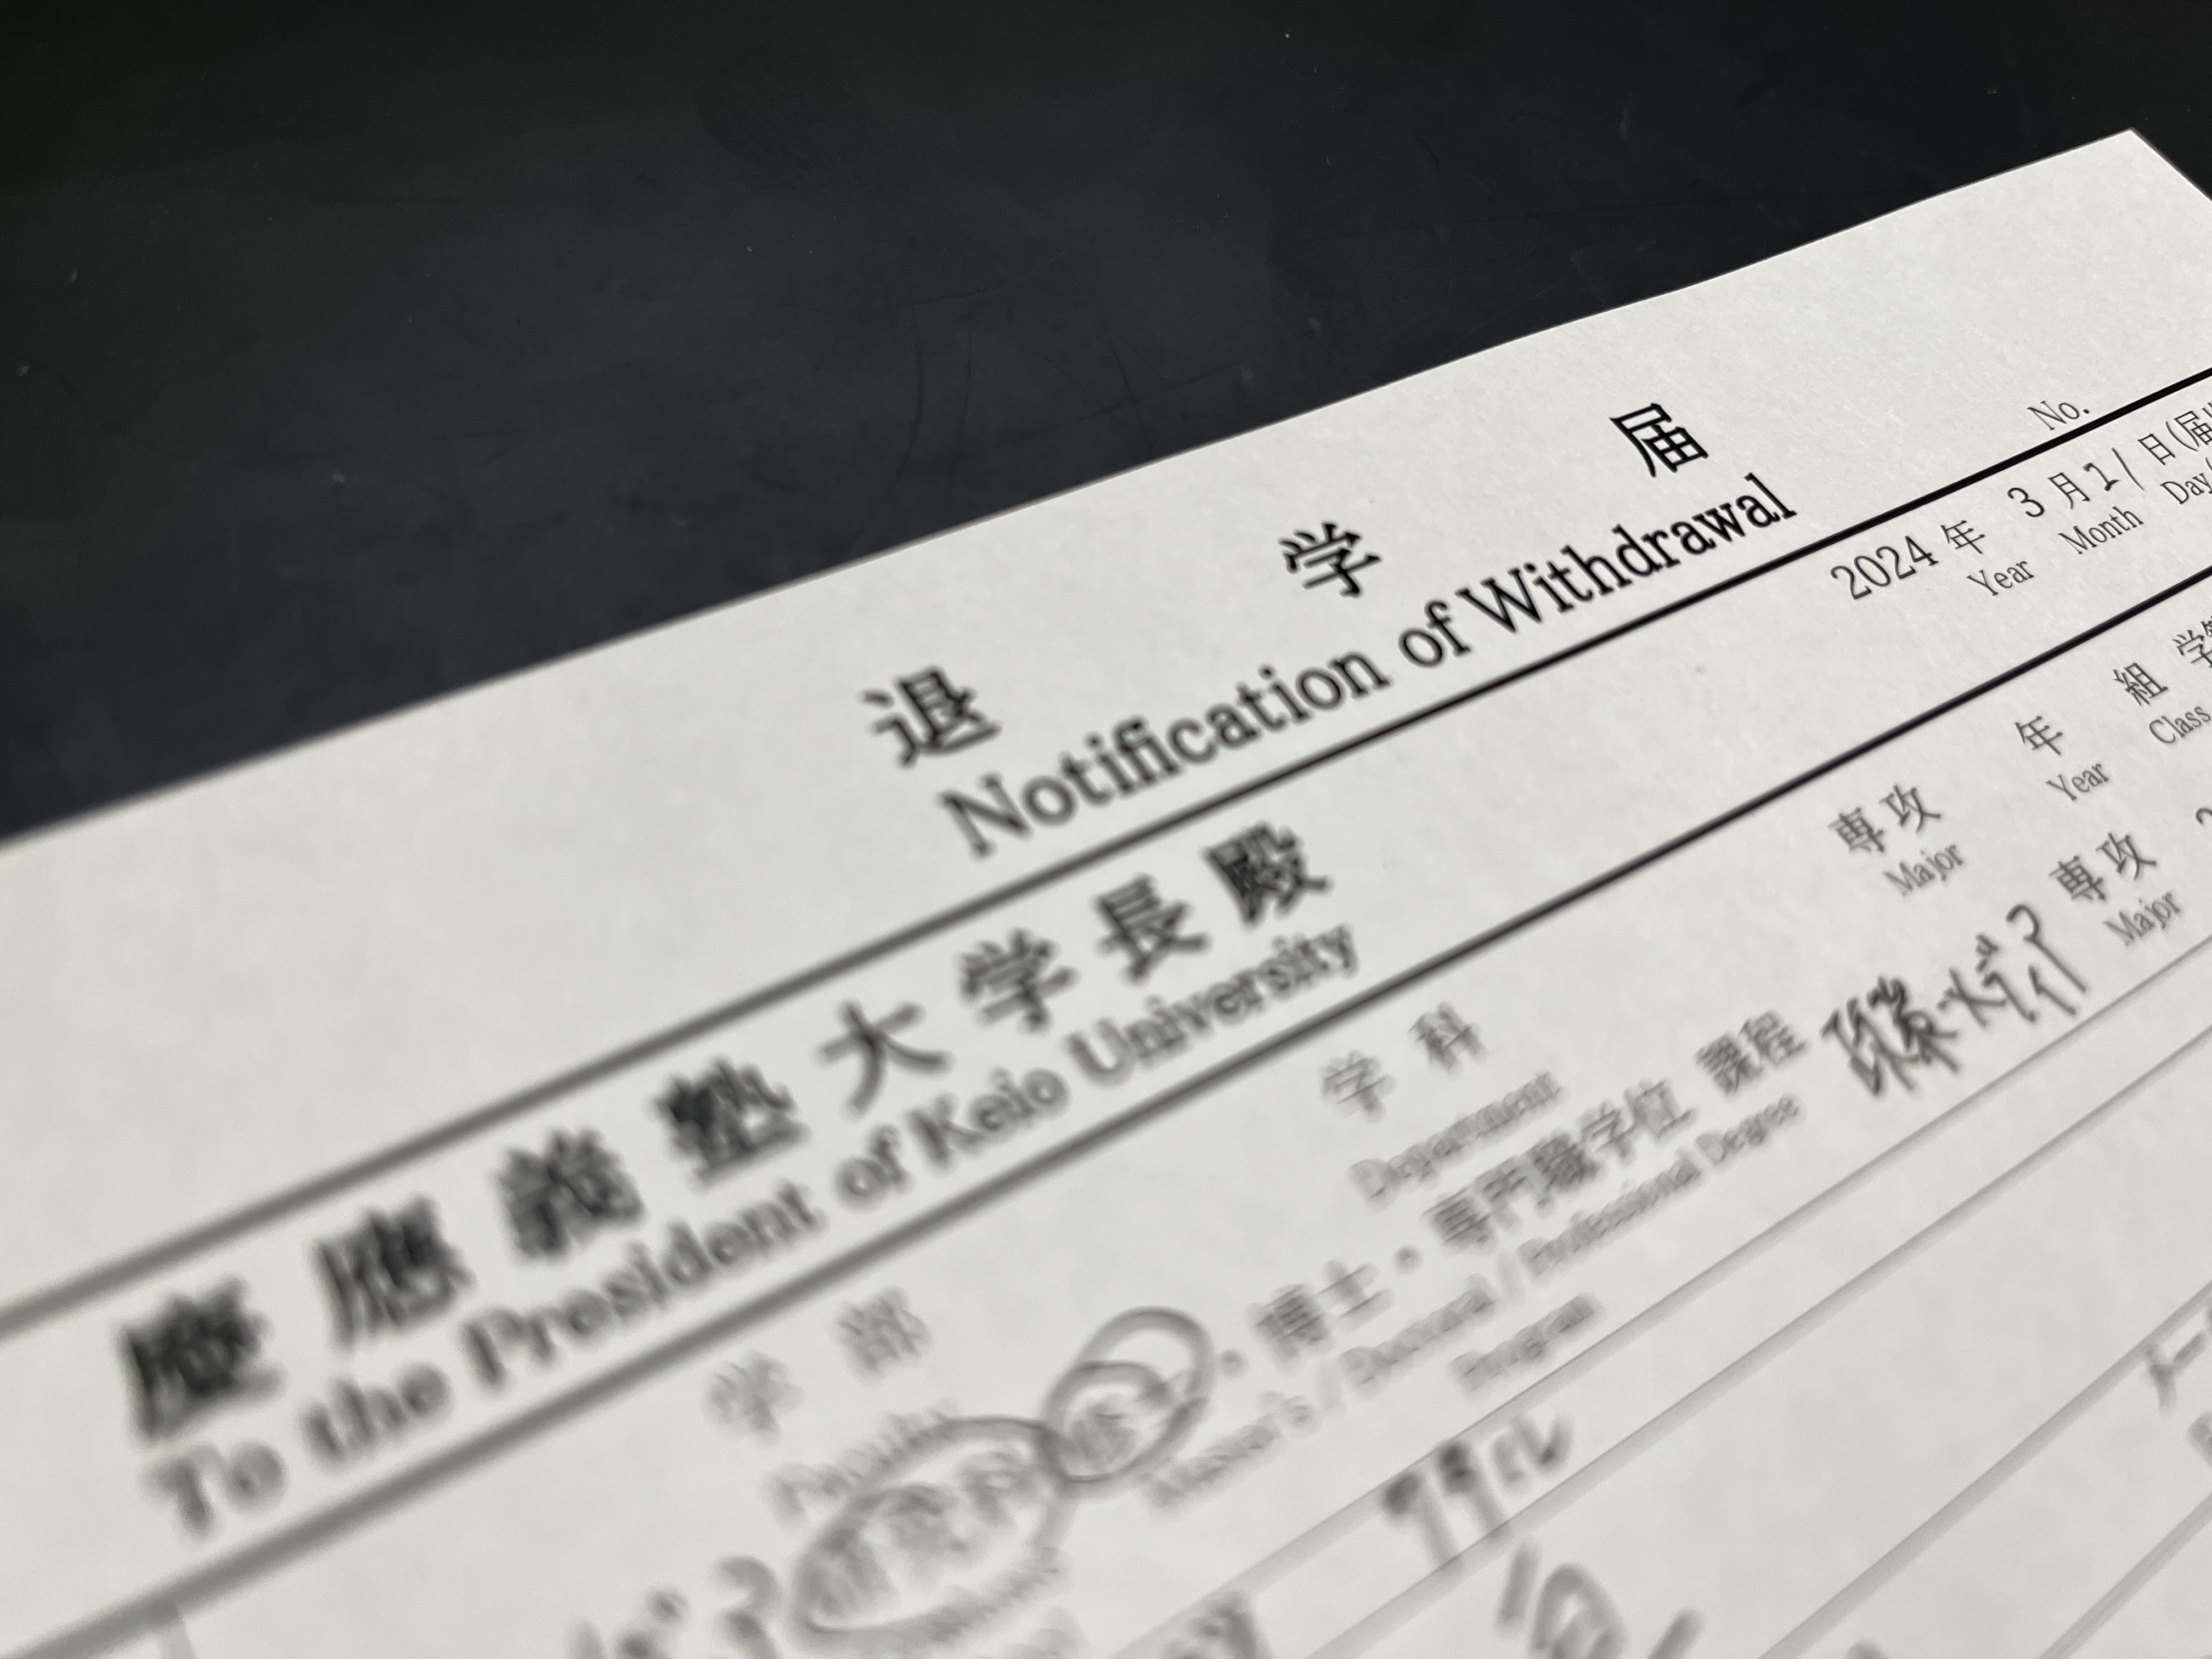 退学届
Notification of Withdrawal
No.
2024年 3月21日(届
Year Month Day
慶應義塾大学長殿
To the President of Keio University
学部 学科 専攻 年 組
Faculty Department Major Year Class
研究科 修士・博士・専門職学位 課程 専攻
Master's / Doctoral / Professional Degree Major
Program